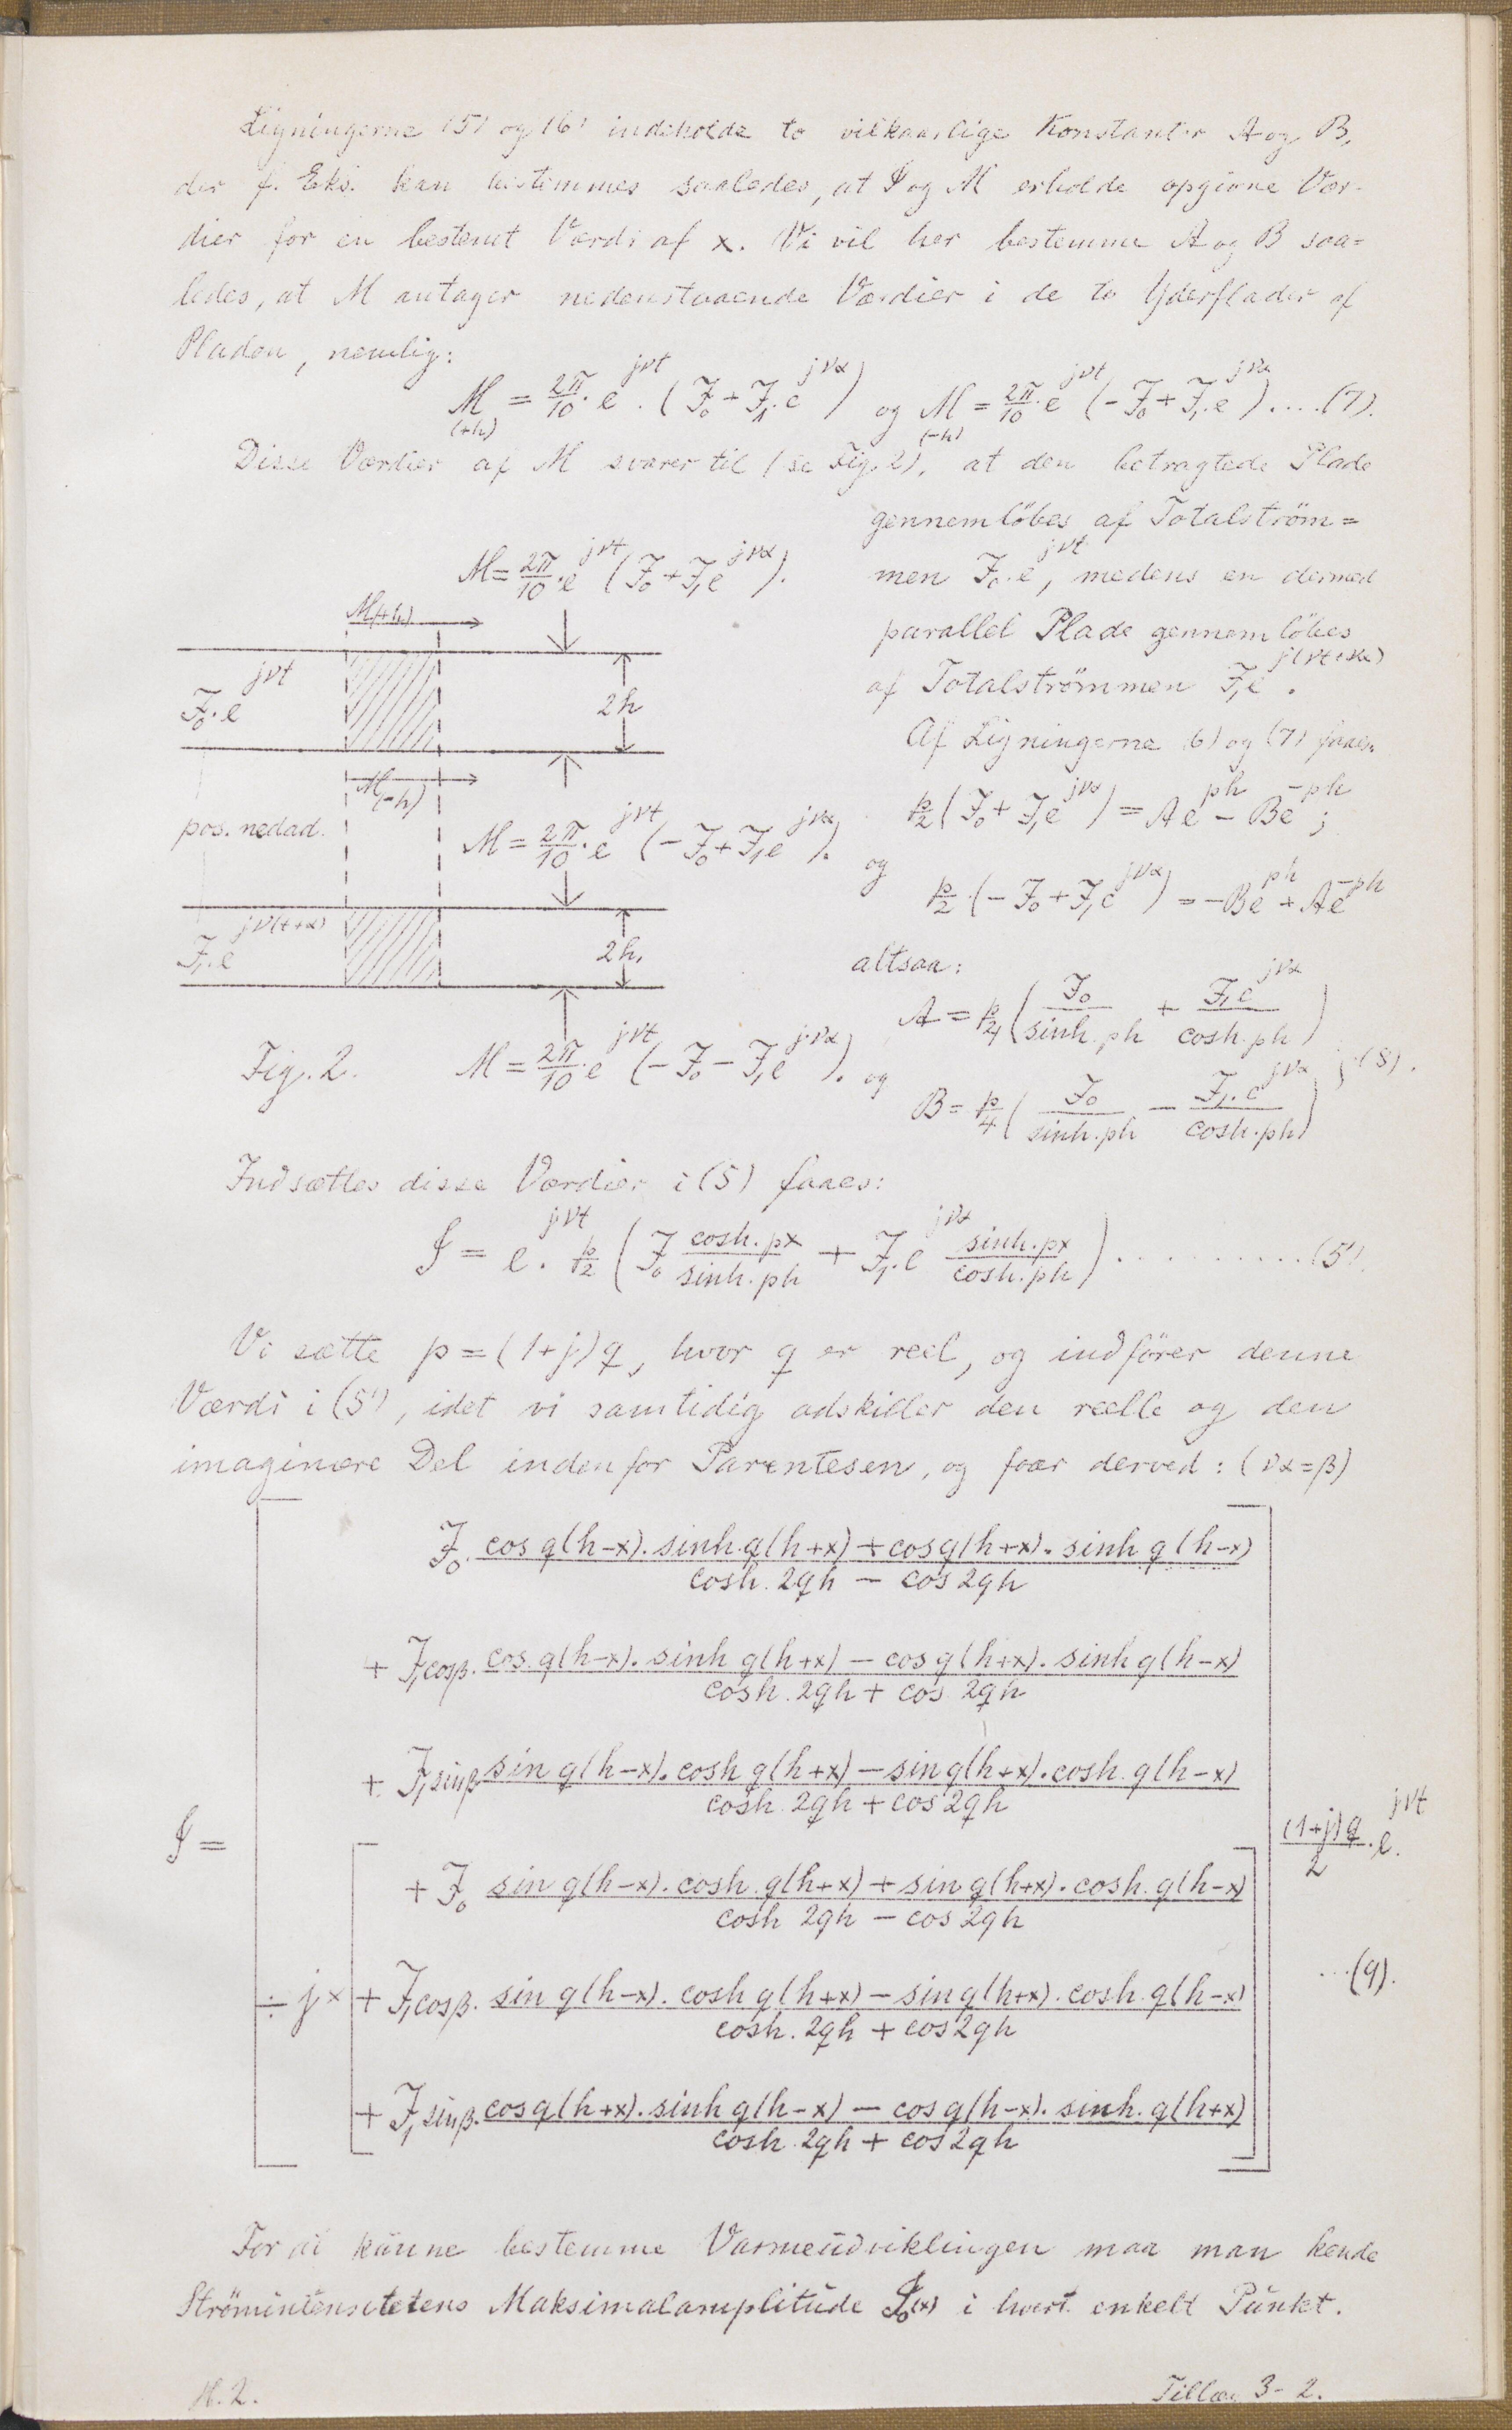 Ligningerne (5) og (6) indeholde to vilkaarlige Konstanter A og B,
der f. Eks. kan bestemmes saaledes, at I og M erholde opgivne Vær-
dier for en bestemt Værdi af x. Vi vil her bestemme A og B saa=
ledes, at M antager nedenstaaende Værdier i de to Yderflader af
Pladen, nemlig:
M(+h) = 2π/10 · e^jνt · (J₀ + J₁·e^jνα) og M(−h) = 2π/10 · e^jνt (−J₀ + J₁·e^jνα) .... (7).
Disse Værdier af M svarer til (se Fig. 2), at den betragtede Plade
gennemlöbes af Totalström=
men J₀·e^jνt, medens en dermed
parallel Plade gennemlöbes
af Totalströmmen J₁e^j(νt+να).
Af Ligningerne (6) og (7) faaes:
p/2 (J₀ + J₁e^jνα) = Ae^ph − Be^−ph;
og p/2 · (−J₀ + J₁e^jνα) = −Be^ph + Ae^−ph
altsaa:
A = p/4 (J₀/sinh.ph + J₁e^jνα/cosh.ph)
og B = p/4 (J₀/sinh.ph − J₁·e^jνα/cosh.ph) ; (8).
M = 2π/10 · e^jνt (J₀ + J₁e^jνα).
M(+h)
J₀·e^jνt
2h
M(−h)
pos. nedad.
M = 2π/10 · e^jνt (−J₀ + J₁e^jνα).
J₁·e^jν(t+α)
2h₁
Fig. 2.
M = 2π/10 · e^jνt (−J₀ − J₁e^jνα).
Indsættes disse Værdier i (5) faaes:
I = e^jνt · p/2 (J₀ cosh.px/sinh.ph + J₁·e^jνα sinh.px/cosh.ph) .......... (5').
Vi sætte p = (1+j)q, hvor q er reel, og indförer denne
Værdi i (5'), idet vi samtidig adskiller den reelle og den
imaginære Del indenfor Parentesen, og faar derved: (να=β)
J₀· cos q(h−x). sinh.q(h+x) + cos q(h+x). sinh q(h−x)
cosh. 2qh − cos 2qh
+ J₁cosβ. cos. q(h−x). sinh q(h+x) − cos q(h+x). sinh q(h−x)
cosh. 2qh + cos 2qh
+ J₁sinβ sin q(h−x). cosh q(h+x) − sin q(h+x). cosh. q(h−x)
cosh. 2qh + cos 2qh
I =
(1+j)q/2 · e^jνt.
+ J₀ sin q(h−x). cosh. q(h+x) + sin q(h+x). cosh. q(h−x)
cosh 2qh − cos 2qh
÷ j × + J₁cosβ. sin q(h−x). cosh q(h+x) − sin q(h+x). cosh. q(h−x)
cosh. 2qh + cos 2qh
...(9).
+ J₁sinβ. cos q(h+x). sinh q(h−x) − cos q(h−x). sinh. q(h+x)
cosh. 2qh + cos 2qh
For at kunne bestemme Varmeudviklingen maa man kende
Strömintensitetens Maksimalamplitude I₀(x) i hvert enkelt Punkt.
H. 2.
Tillæg 3-2.